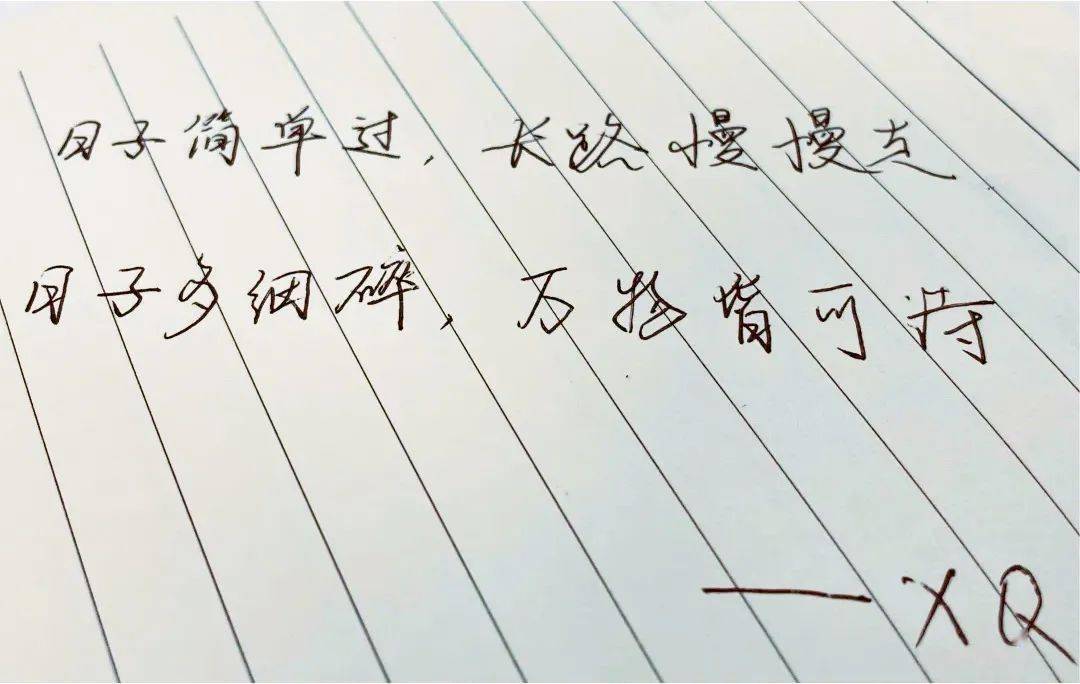 日子简单过，长路慢慢走
日子多细碎，万物皆可诗
——XQ